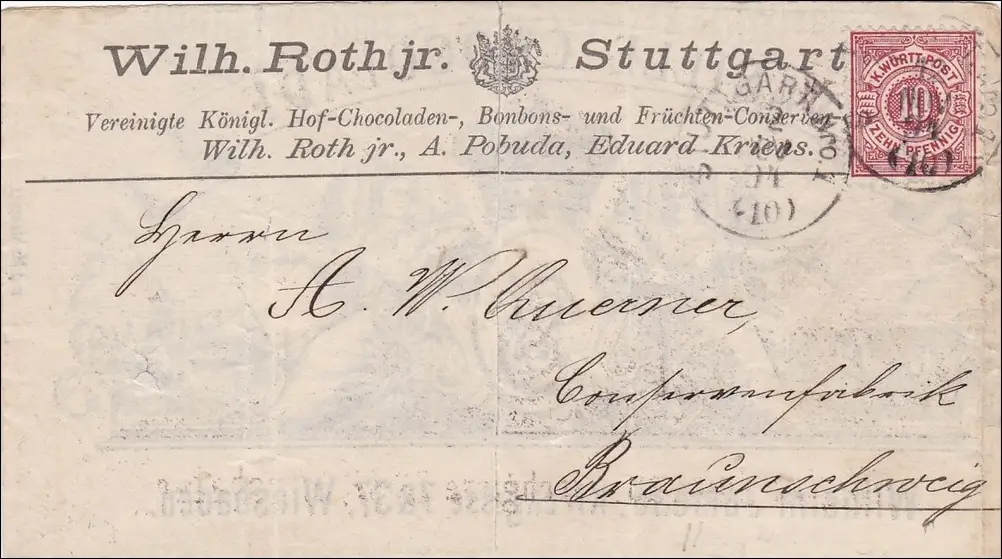 Wilh. Roth jr. Stuttgart
Vereinigte Königl. Hof-Chocoladen-, Bonbons- und Früchten-Conserven
Wilh. Roth jr., A. Pobuda, Eduard Kriens.
K. WÜRTT. POST
10
ZEHN PFENNIG
(10)
Herrn
A. W. Querner,
Conservenfabrik
Braunschweig
Kirchgasse 7 & 37, Wiesbaden.